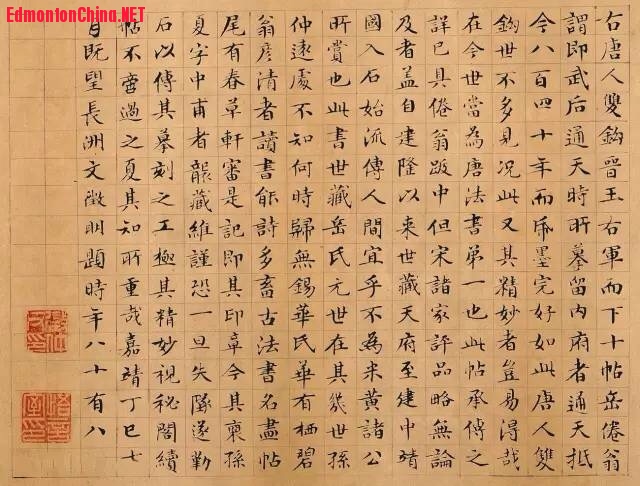 EdmontonChina.NET
右唐人雙鉤晉王右軍而下十帖岳倦翁
謂即武后通天時所摹留內府者通天抵
今八百四十年而帋墨完好如此唐人雙
鉤世不多見況此又其精妙者豈易得哉
在今世當為唐法書第一也此帖承傳之
詳已具倦翁跋中但宋諸家評品略無論
及者蓋自建隆以來世藏天府至建中靖
國入石始流傳人間宜乎不為米黃諸公
所賞也此書世藏岳氏元世在其幾世孫
仲遠處不知何時歸無錫華氏華有栖碧
翁彥清者讀書能詩多畜古法書名畫帖
尾有春草軒審是記即其印章今其裔孫
夏字中甫者襲藏維謹恐一旦失墜遂勒
石以傳其摹刻之工極其精妙視秘閣續
帖不啻過之夏其知所重哉嘉靖丁巳七
月既望長洲文徵明題時年八十有八